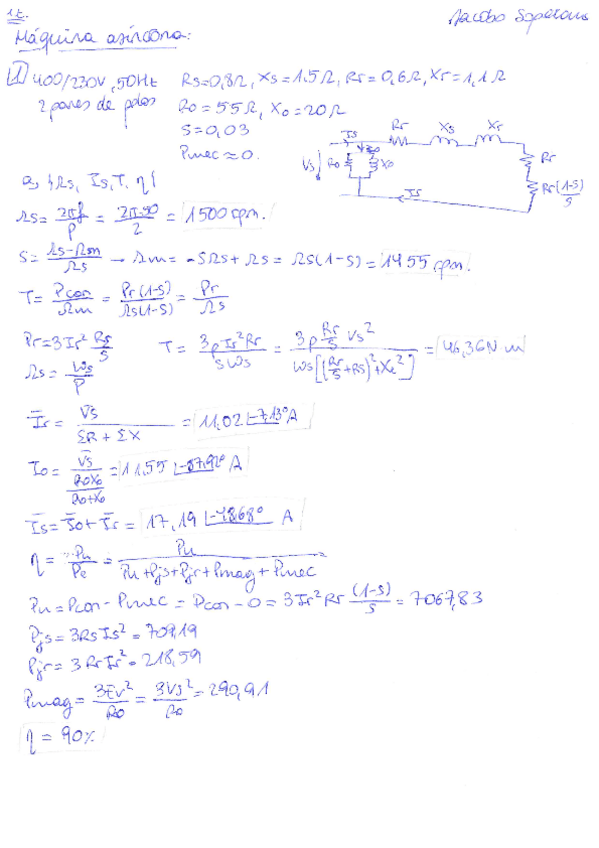 1E
Jacobo
Máquina asíncrona:
1 400/230V, 50Hz Rs=0,8Ω, Xs=1,5Ω, Rr=0,6Ω, Xr=1,1Ω
2 pares de polos Ro=55Ω, Xo=20Ω
S=0,03
Pmec≈0.
Is Rr Xs Xr
Vs Ro Xo Rr
Rr(1-S)/S
Is
a, Ωs, Is, T, η
Ωs = 2πf/P = 2π·50/2 = 1500 rpm.
S = (Ωs-Ωm)/Ωs → Ωm = -SΩs + Ωs = Ωs(1-S) = 1455 rpm.
T = Pcon/Ωm = Pr(1-S)/Ωs(1-S) = Pr/Ωs
Pr = 3Ir² Rr/S T = 3pIr²Rr/SWs = 3p Rr/S Vs² / Ws[(Rr/S+Rs)²+Xc²] = 46,36N m
Ωs = Ws/P
Ir = Vs/(ΣR + ΣX) = 11,02 |-7,13° A
Io = Vs/(RoXo/(Ro+Xo)) = 11,55 A
Is = Io + Ir = 17,19 A
η = Pu/Pe = Pu/(Pu+Pjs+Pjr+Pmag+Pmec)
Pu = Pcon - Pmec = Pcon - 0 = 3Ir²Rr (1-S)/S = 7067,83
Pjs = 3RsIs² = 709,19
Pjr = 3RrIr² = 218,59
Pmag = 3Ev²/Ro = 3Vs²/Ro = 290,91
η = 90%